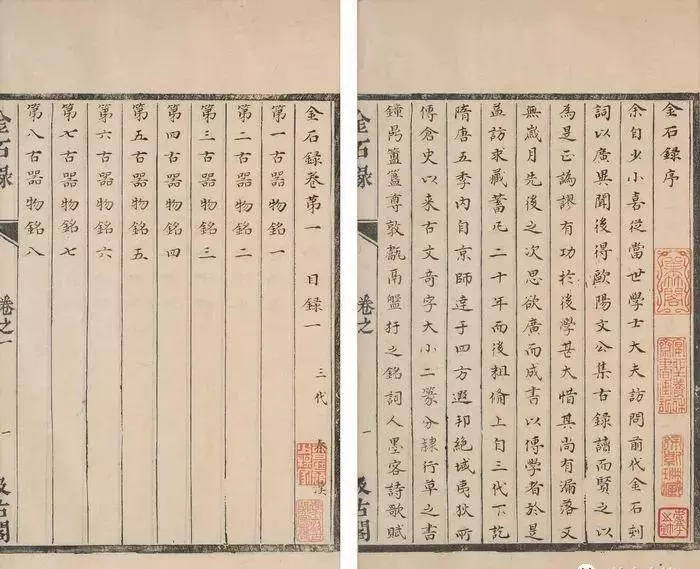 金石録序
余自少小喜從當世學士大夫訪問前代金石刻
詞以廣異聞後得歐陽文公集古録讀而賢之以
為是正譌謬有功於後學甚大惜其尚有漏落又
無歲月先後之次思欲廣而成書以傳學者於是
益訪求藏蓄凡二十年而後粗備上自三代下訖
隋唐五季內自京師達于四方遐邦絶域夷狄所
傳倉史以来古文奇字大小二篆分隷行草之書
鐘鼎簠簋尊敦甗鬲盤杅之銘詞人墨客詩歌賦
金石録卷第一 目録一 三代 秦 漢
第一古器物銘一
第二古器物銘二
第三古器物銘三
第四古器物銘四
第五古器物銘五
第六古器物銘六
第七古器物銘七
第八古器物銘八
金石録 卷之一 一 汲古閣